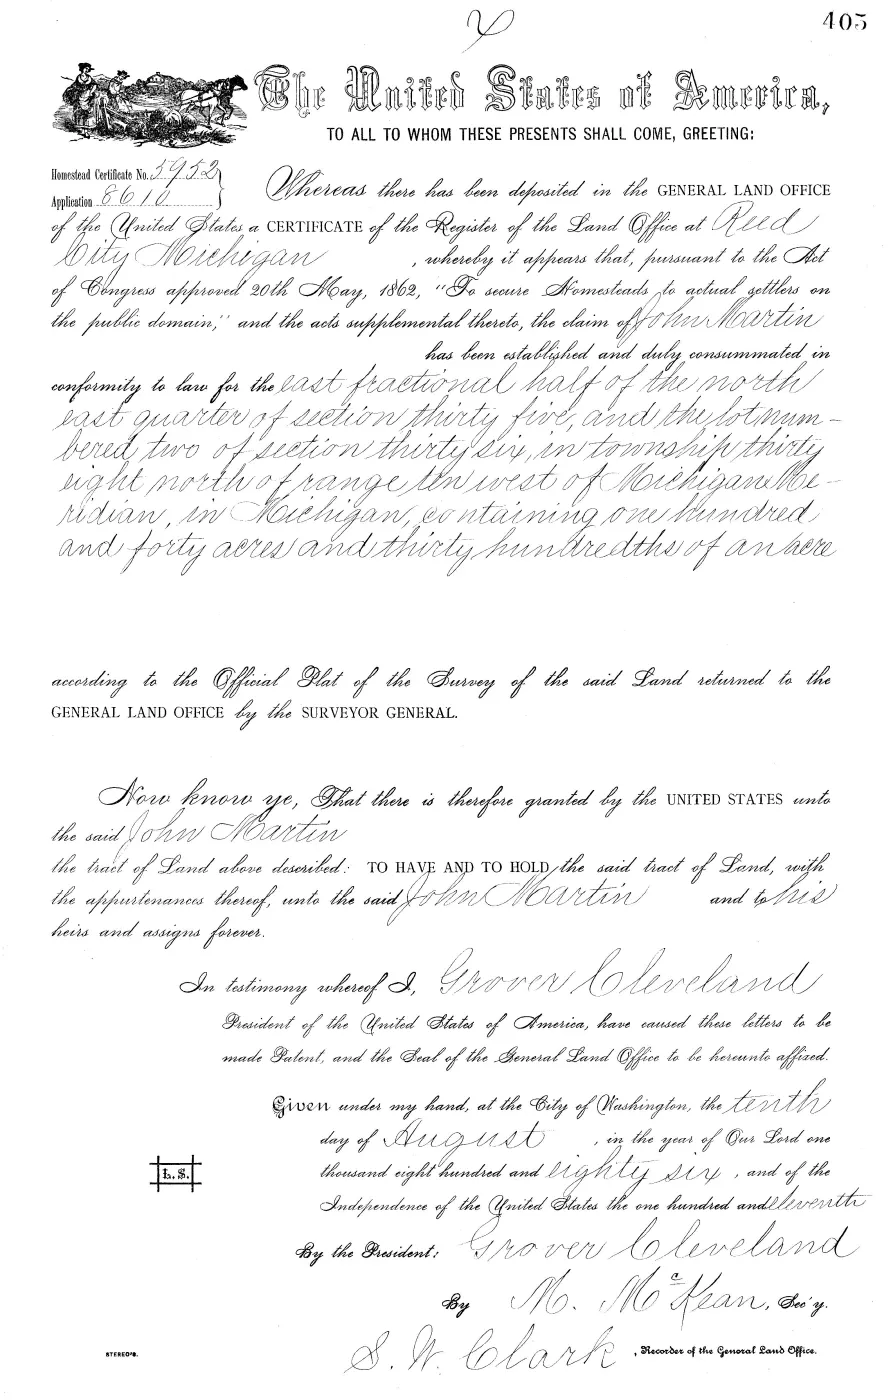 405
The United States of America,
TO ALL TO WHOM THESE PRESENTS SHALL COME, GREETING:
Homestead Certificate No. 5952
Application 8610
Whereas there has been deposited in the GENERAL LAND OFFICE
of the United States a CERTIFICATE of the Register of the Land Office at Reed
City Michigan , whereby it appears that, pursuant to the Act
of Congress approved 20th May, 1862, "To secure Homesteads to actual settlers on
the public domain," and the acts supplemental thereto, the claim of John Martin
has been established and duly consummated in
conformity to law for the east fractional half of the north
east quarter of section thirty five, and the lot num-
bered two of section thirty six, in township thirty
eight north of range ten west of Michigan Me-
ridian, in Michigan, containing one hundred
and forty acres and thirty hundredths of an acre
according to the Official Plat of the Survey of the said Land returned to the
GENERAL LAND OFFICE by the SURVEYOR GENERAL.
Now know ye, That there is therefore granted by the UNITED STATES unto
the said John Martin
the tract of Land above described: TO HAVE AND TO HOLD the said tract of Land, with
the appurtenances thereof, unto the said John Martin and to his
heirs and assigns forever.
In testimony whereof I, Grover Cleveland
President of the United States of America, have caused these letters to be
made Patent, and the Seal of the General Land Office to be hereunto affixed.
Given under my hand, at the City of Washington, the tenth
day of August , in the year of Our Lord one
thousand eight hundred and eighty six , and of the
L.S.
Independence of the United States the one hundred and eleventh
By the President: Grover Cleveland
By M. McKean, Sec'y.
STEREO'S.
S. W. Clark , Recorder of the General Land Office.